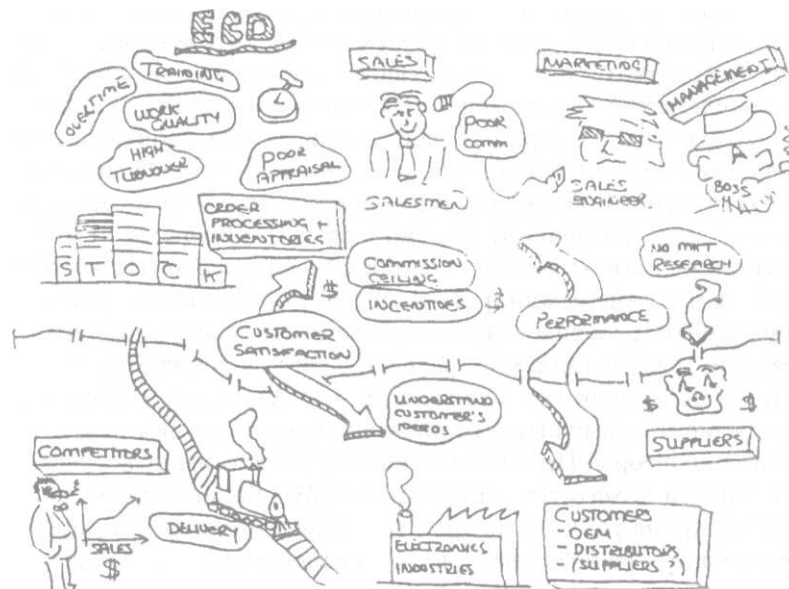 ECD
TRAINING
OVERTIME
WORK
QUALITY
HIGH
TURNOVER
POOR
APPRAISAL
SALES
POOR
COMM
SALESMEN
MARKETING
SALES
ENGINEER
MANAGEMENT
BOSS
ORDER
PROCESSING +
INVENTORIES
STOCK
COMMISSION
CEILING
INCENTIVES
$
$
NO MKT
RESEARCH
PERFORMANCE
CUSTOMER
SATISFACTION
UNDERSTAND
CUSTOMER'S
NEEDS
$
$
SUPPLIERS
COMPETITORS
SALES
$
DELIVERY
ELECTRONICS
INDUSTRIES
CUSTOMERS
- OEM
- DISTRIBUTORS
- (SUPPLIERS ?)